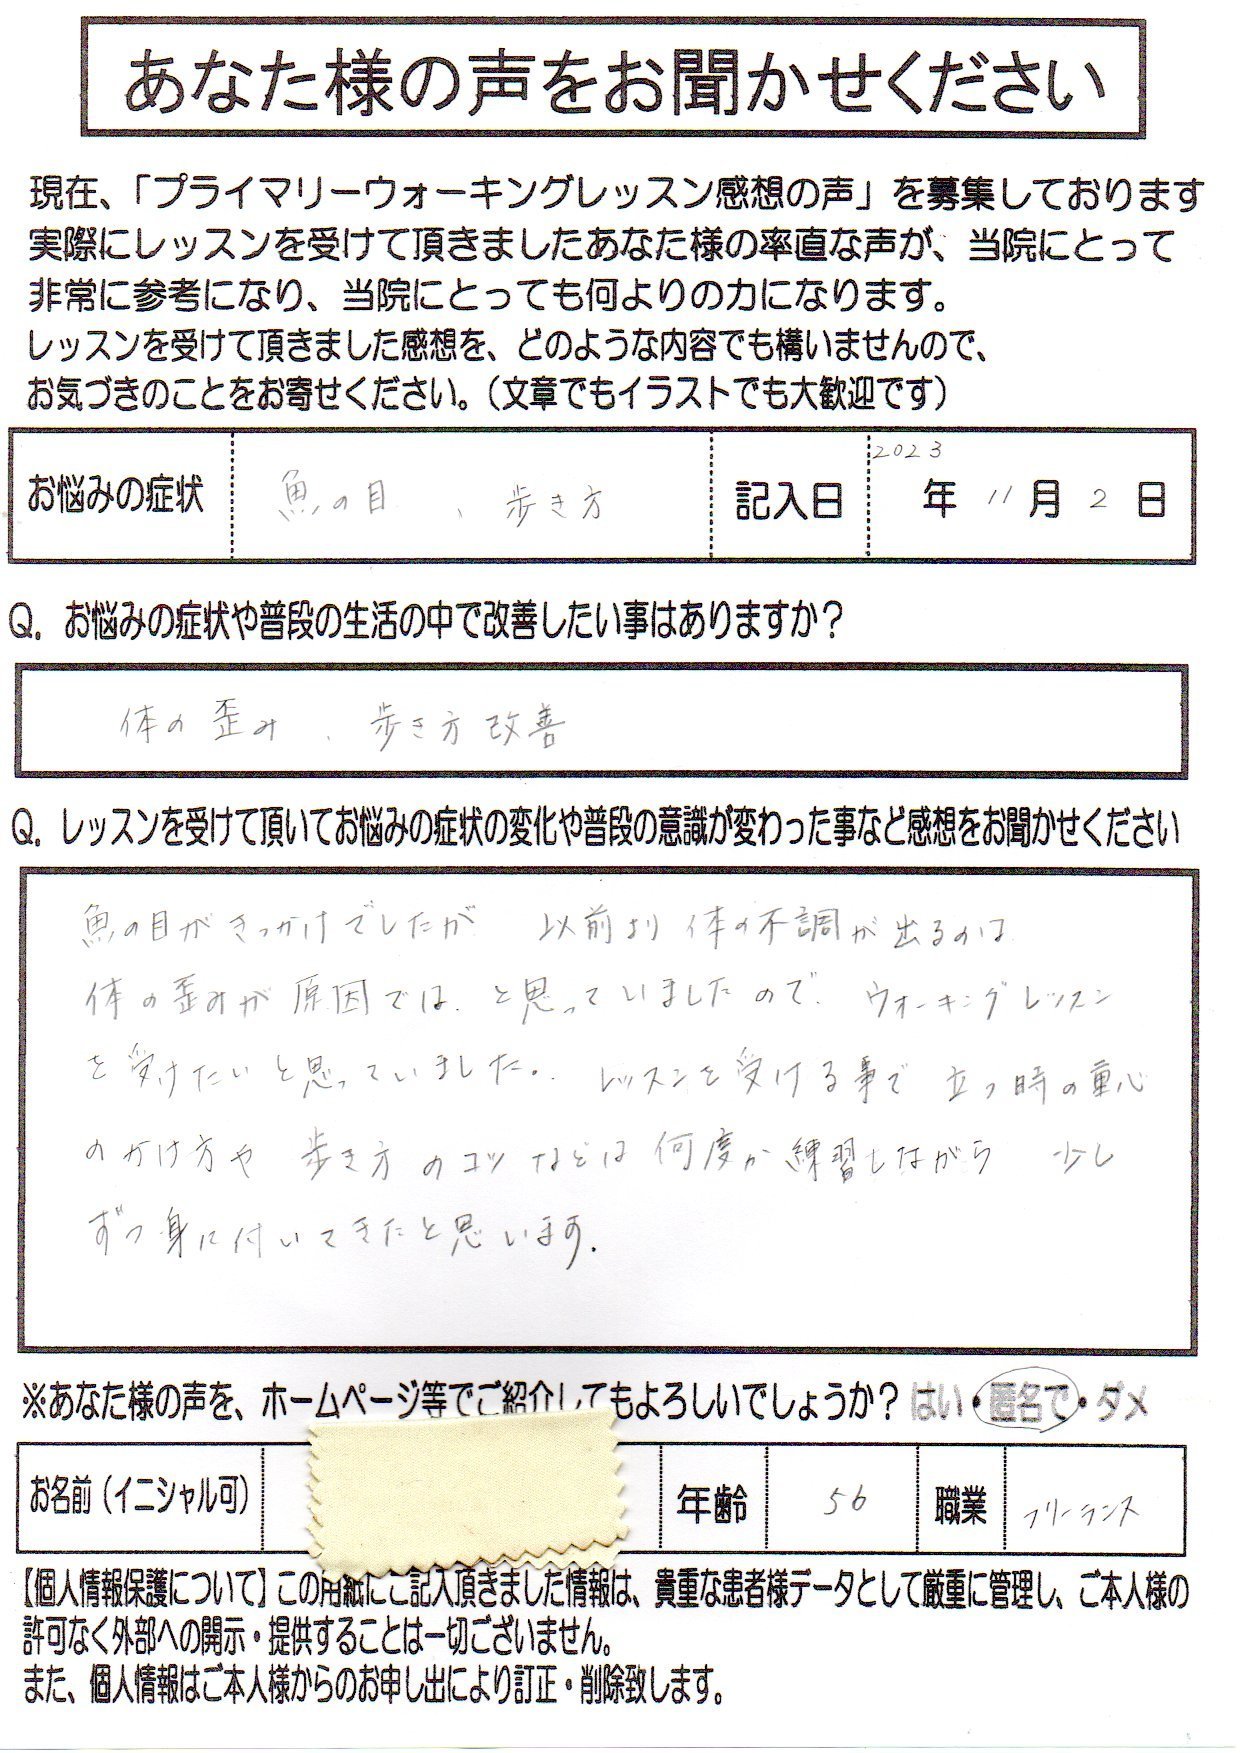 あなた様の声をお聞かせください
現在、「プライマリーウォーキングレッスン感想の声」を募集しております
実際にレッスンを受けて頂きましたあなた様の率直な声が、当院にとって
非常に参考になり、当院にとっても何よりの力になります。
レッスンを受けて頂きました感想を、どのような内容でも構いませんので、
お気づきのことをお寄せください。(文章でもイラストでも大歓迎です)
お悩みの症状 魚の目 、歩き方 記入日 2023年 11月 2日
Q. お悩みの症状や普段の生活の中で改善したい事はありますか?
体の歪み、歩き方改善
Q. レッスンを受けて頂いてお悩みの症状の変化や普段の意識が変わった事など感想をお聞かせください
魚の目がきっかけでしたが 以前より体の不調が出るのは
体の歪みが原因では、と思っていましたので、ウォーキングレッスン
を受けたいと思っていました。レッスンを受ける事で立つ時の重心
のかけ方や 歩き方のコツなどは何度か練習しながら 少し
ずつ身に付いてきたと思います。
※あなた様の声を、ホームページ等でご紹介してもよろしいでしょうか? はい・匿名で・ダメ
お名前(イニシャル可) 年齢 56 職業 フリーランス
【個人情報保護について】この用紙にご記入頂きました情報は、貴重な患者様データとして厳重に管理し、ご本人様の
許可なく外部への開示・提供することは一切ございません。
また、個人情報はご本人様からのお申し出により訂正・削除致します。